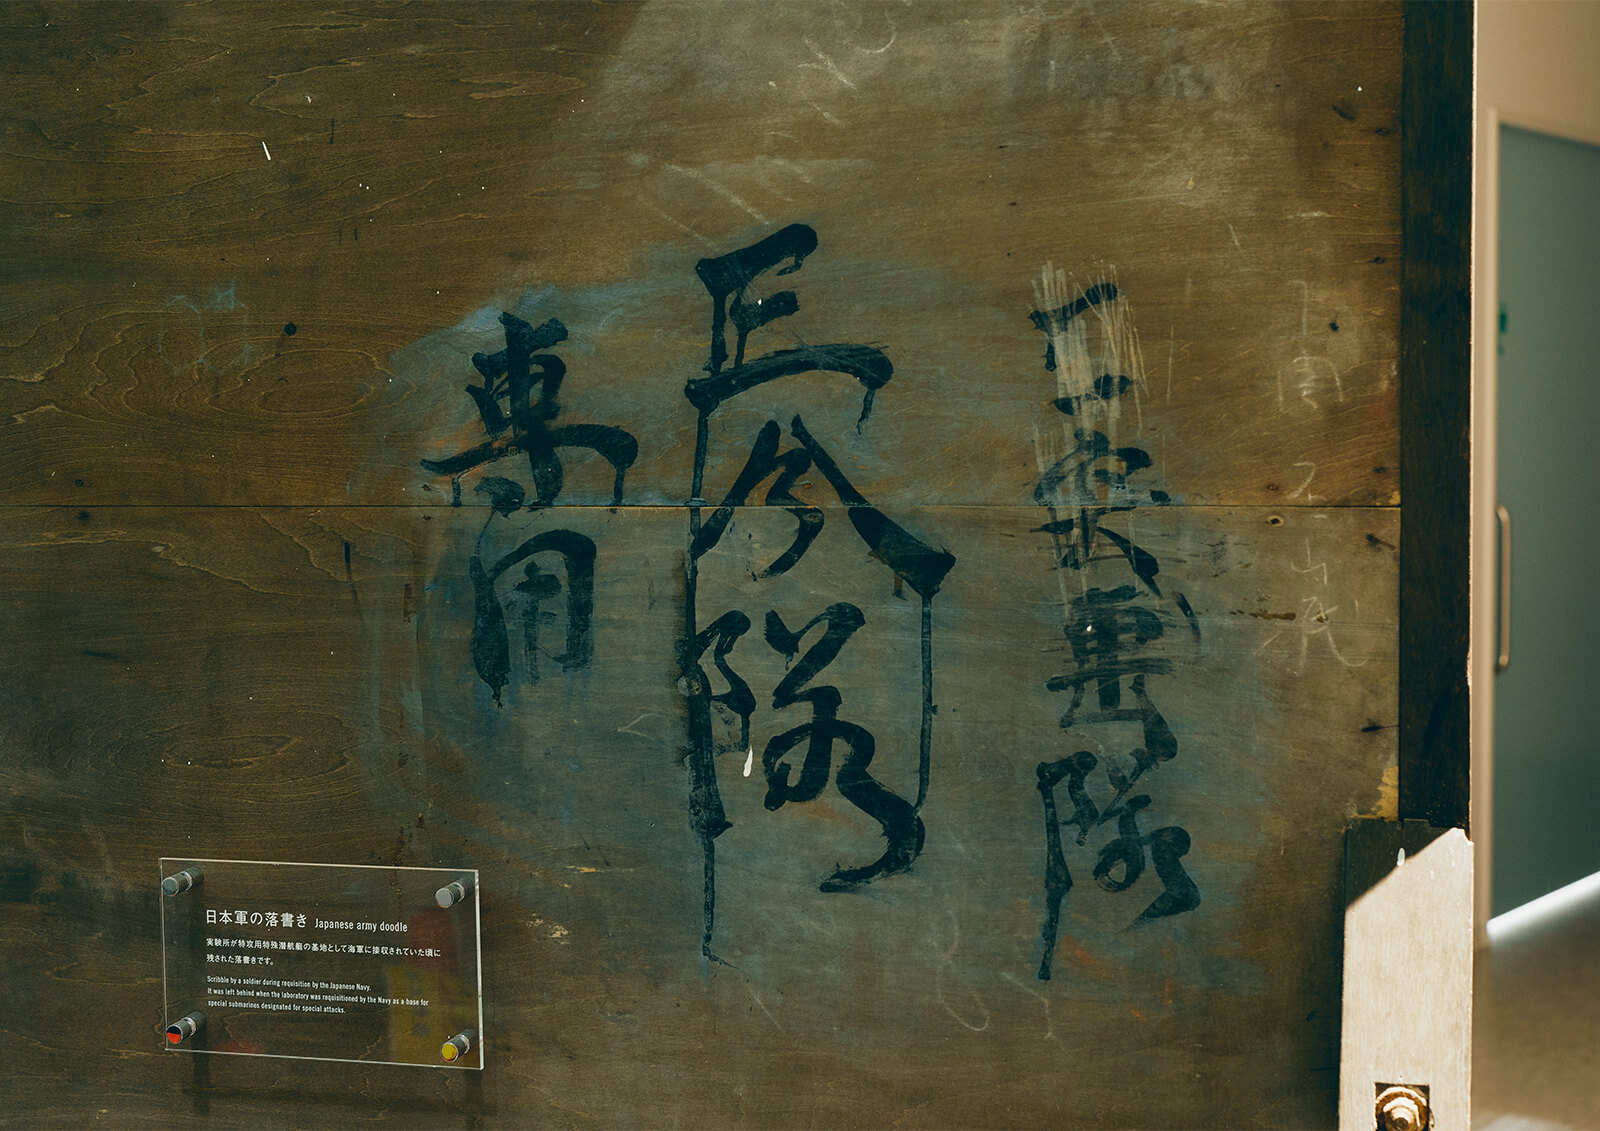 長分隊
専用
日本軍の落書き Japanese army doodle
実験所が特攻用特殊潜航艇の基地として海軍に接収されていた頃に
残された落書きです。
Scribble by a soldier during requisition by the Japanese Navy.
It was left behind when the laboratory was requisitioned by the Navy as a base for
special submarines designated for special attacks.